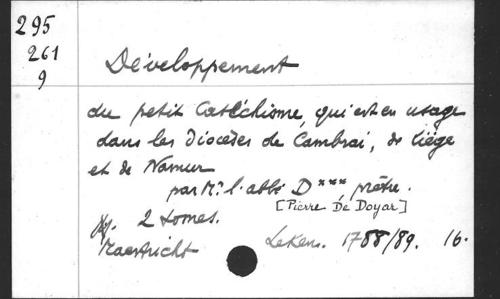 295
261
9
Développement
du petit Catéchisme, qui est en usage
dans les Diocèses de Cambrai, de Liége
et de Namur
par Mr. l'abbé D*** prêtre.
[Pierre De Doyar]
2 tomes.
Maestricht Lekens. 1788/89. 16.